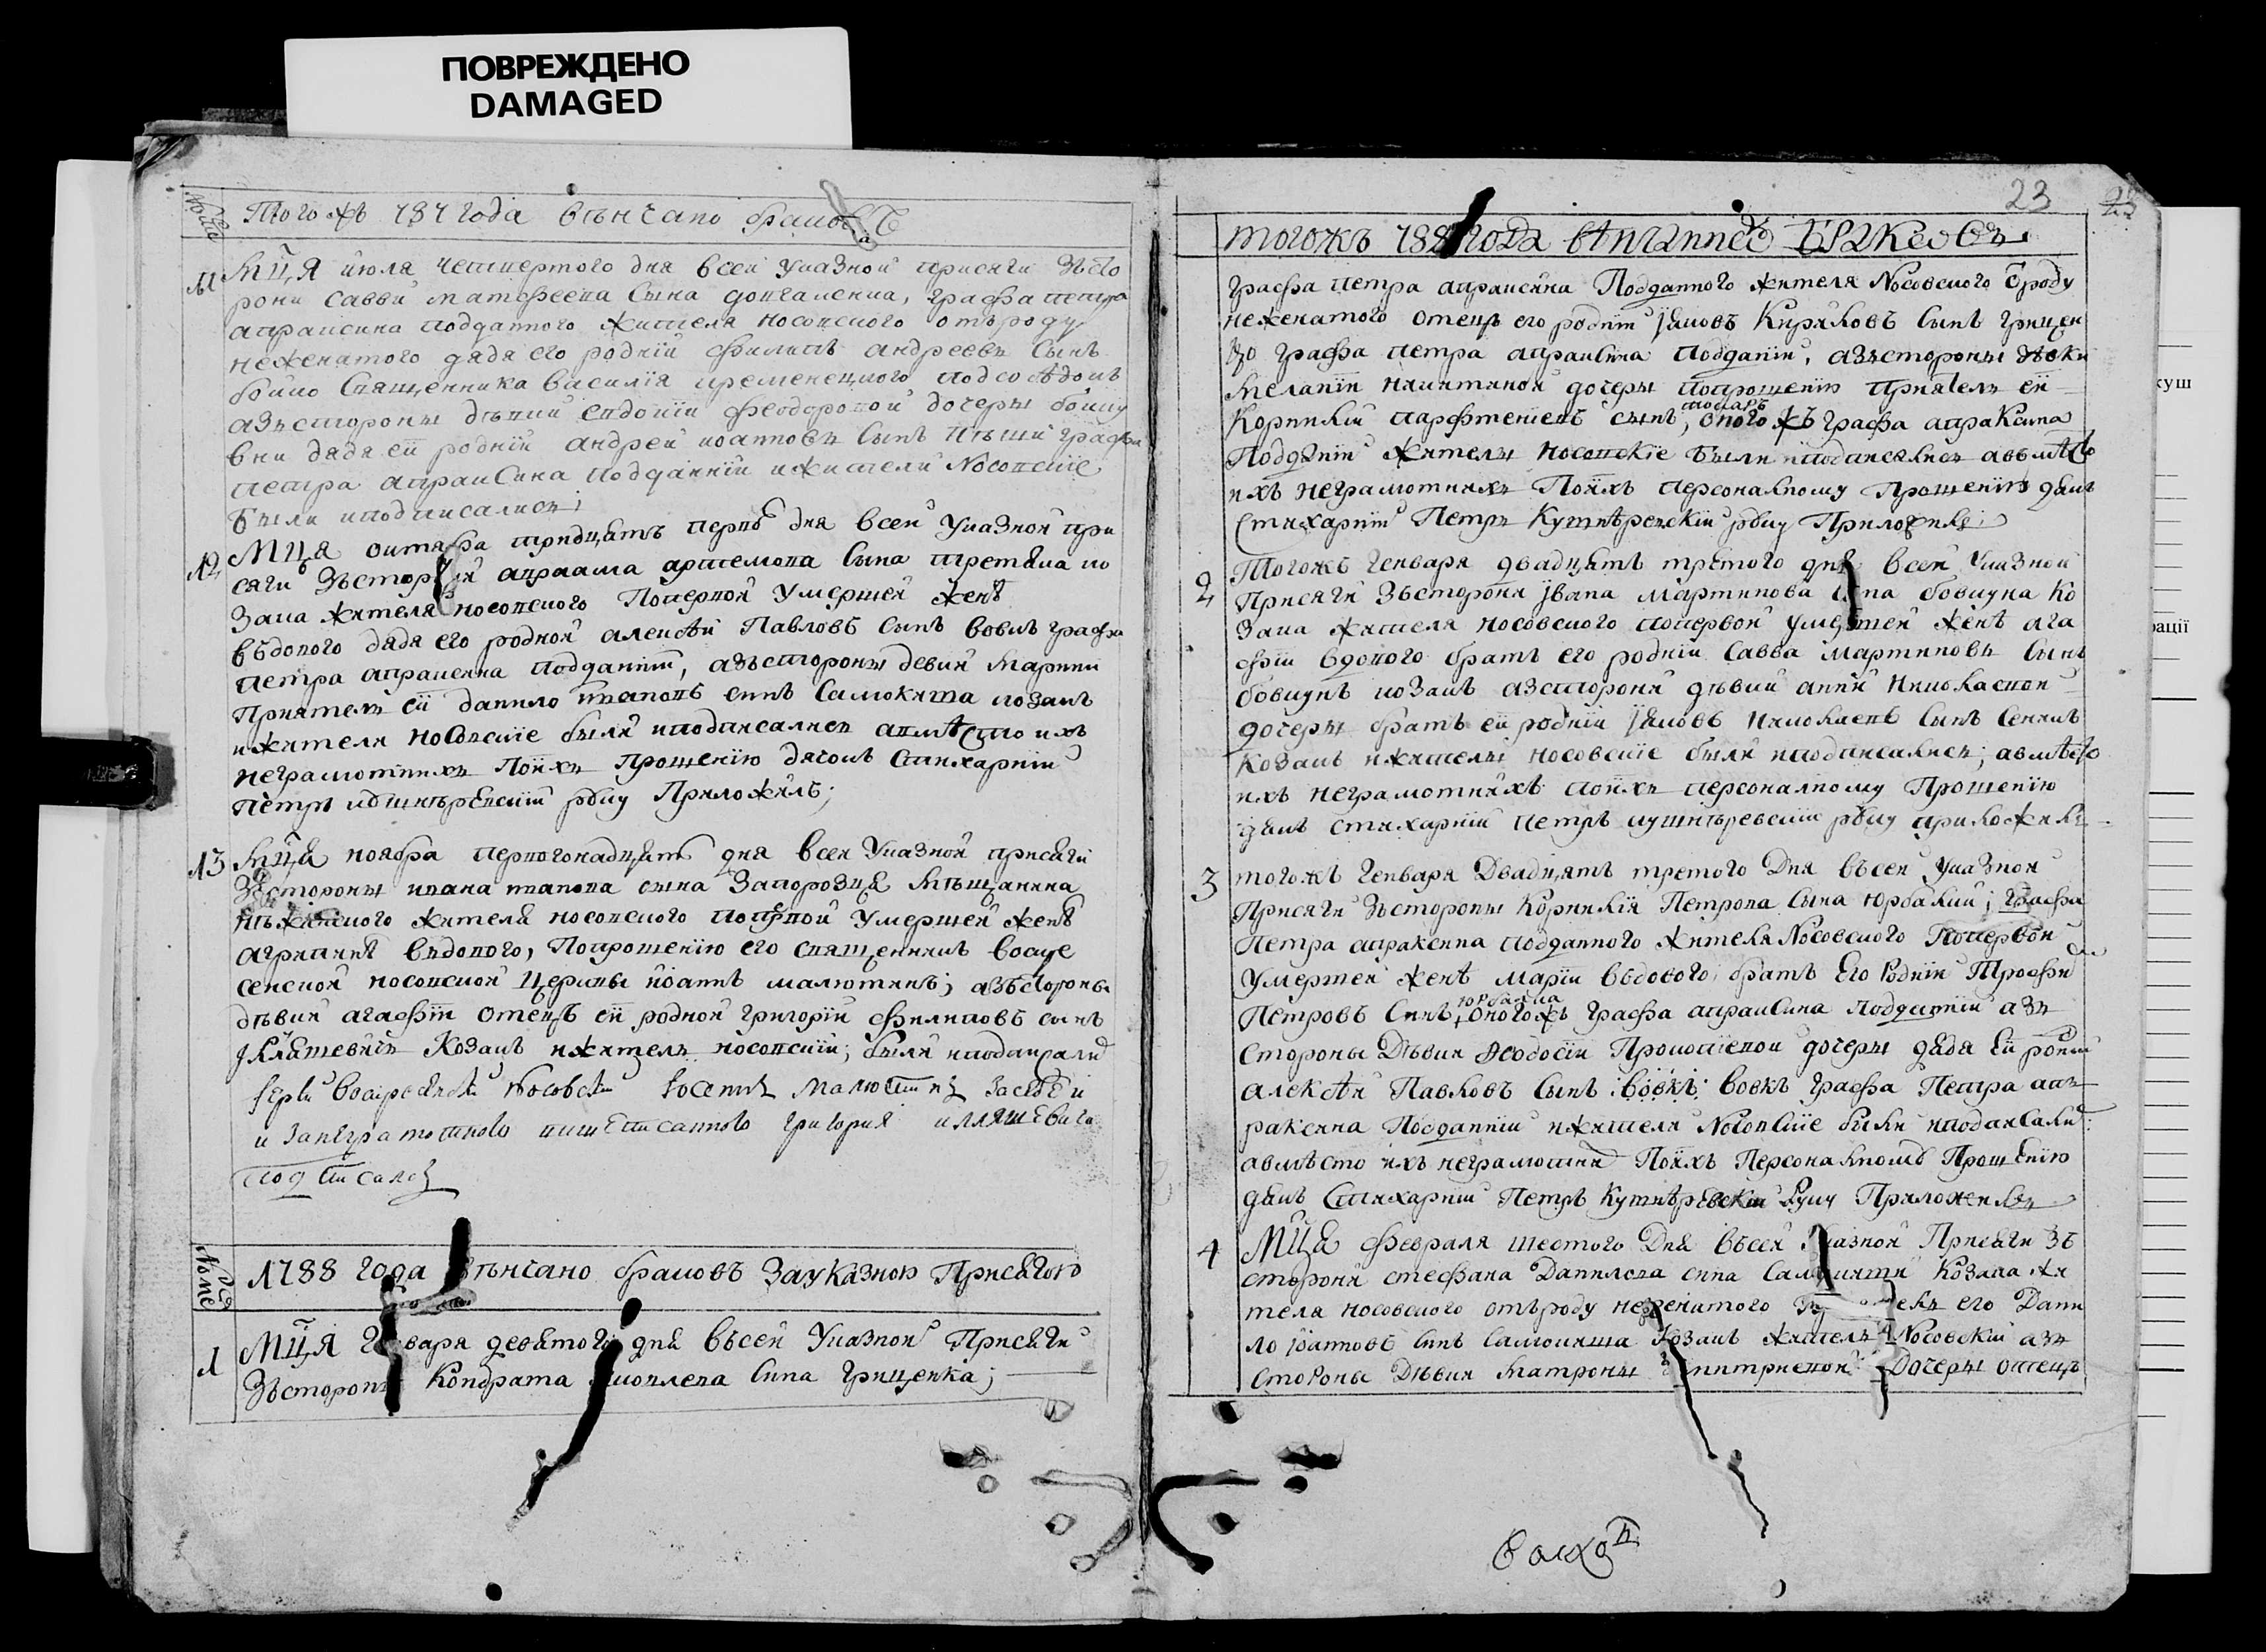 ПОВРЕЖДЕНО
DAMAGED
№
Того жъ 787 года вѣнчано браковъ
11 Мц҃а июля четвертого дня всей указной присяги зъсто
рони Савви Матфеева сына графа петра
апраксина подданного жителя носовского отъроду
неженатого дядя его родній филипъ андреевъ сынъ
бойко священника василія кременецкого подсосѣдокъ
азъстороны дѣвки евдокіи феодоровой дочеры бойку
вни дядя ей родній андрей иоанновъ сынъ графа
петра апраксина подданній ижители Nосовскіе
были иподписались;
12 Мц҃а октября тридцять перво дня всей указной при
сяги зъсторони авраама артемова сына третяка ко
зака жителя носовского поперво́й умершей женѣ
въдового дядя его родной алексѣй Павловъ сынъ вовкъ графа
петра апраксина подданній, азъстороны девки Марини
Приятель ей данило ивановъ синъ Самокиша козакъ
ижители носовскіе были иподписались авмѣсто ихъ
неграмотнихъ Поихъ прошенію дячокъ Стихарній
Петръ кушнѣревскій руку Приложилъ;
13 Мц҃а ноября первогонадцять дня всей Указной присяги
Зъстороны ивана иванова сына Запорозця мѣщанина
нѣжинского жителя носовского поперво́й умершей женѣ
агрипинѣ въдового, Попрошенію его священникъ воскре
сенской носовской Церкви иоаннъ малютинъ; азъстороны
дѣвки агафіи отецъ ей родной григорій филиповъ сынъ
Иляшевичъ Козакъ ижитель носовскій; были иподписались
Іерей воскресенскій Носовскій Іоаннъ Малютинъ засебе и
и занеграмотного вишеписанного григория иляшевича
подписался
№
1788 года вѣнчано браковъ Зауказною Присягою
1 Мц҃а Генваря девятого дня въсей Указной Присяги
Зъстороны Кондрата сина Гриценка;
23 23
тогожъ 788 года вѣнчанно БРАКОВЪ
графа петра апраксина Подданного жителя Nосовского Отроду
неженатого отецъ его родній Іяковъ Кириловъ сынъ гриценко
графа петра апраксина подданій, азъстороны дѣвки
Мелании никитиной дочеры попрошенію приятель ей
Корнилій парфениевъ сынъ, оного жъ графа апраксина
Подданій жители носовскіе были иподписались авъмѣсто
ихъ неграмотнихъ Поихъ персоналному Прошенію дякъ
Стихарній Петръ Кушнѣревскій руку Приложилъ;
2 Тогожъ Генваря двадцять третого дня всей Указной
Присяги Зъсторони Івана Мартинова сына бовкуна Ко
зака жителя носовского поперво́й умершей женѣ ага
фіи вдового братъ его родній Савва Мартиновъ сынъ
бовкунъ козакъ азсторони дѣвки анни Николаевой
дочеры братъ ей родній Іяковъ Николаевъ сынъ Сенякъ
Козакъ ижители носовскіе были иподписались; авмѣсто
ихъ неграмотнихъ поихъ персоналному Прошенію
дякъ стихарній петръ кушнѣревскій руку приложилъ
3 тогожъ Генваря Двадцять третого Дня въсей указной
Присяги Зъстороны Корнилія Петрова сына Юрбакии; Графа
Петра апраксина подданного жителя Nосовского Поперво́й
умершей женѣ марии въдового братъ Его Родній Трофи
Петровъ синъ, Оногожъ графа апраксина подданній азъ
стороны Дѣвки Феодосіи Прокопіевой дочеры дядя Ей родній
алексѣй Павловъ сынъ вовкъ графа Петра ап
раксина Подданній ижители Nосовскіе были иподписались:
авмѣсто ихъ неграмотни Поихъ Персоналному Прошенію
дякъ Стихарній Петръ Кушнѣревскій Руку Приложилъ
4 Мц҃а февраля шестого Дня въсей Указной Присяги Зъ
сторони стефана Данилова сина Самокиши Козака жи
теля носовского отъроду неженатого его Дани
ло Іоанновъ синъ Самокиша Козакъ житель Nосовскій азъ
стороны Дѣвки Матроны Димитриевой Дочеры отецъ